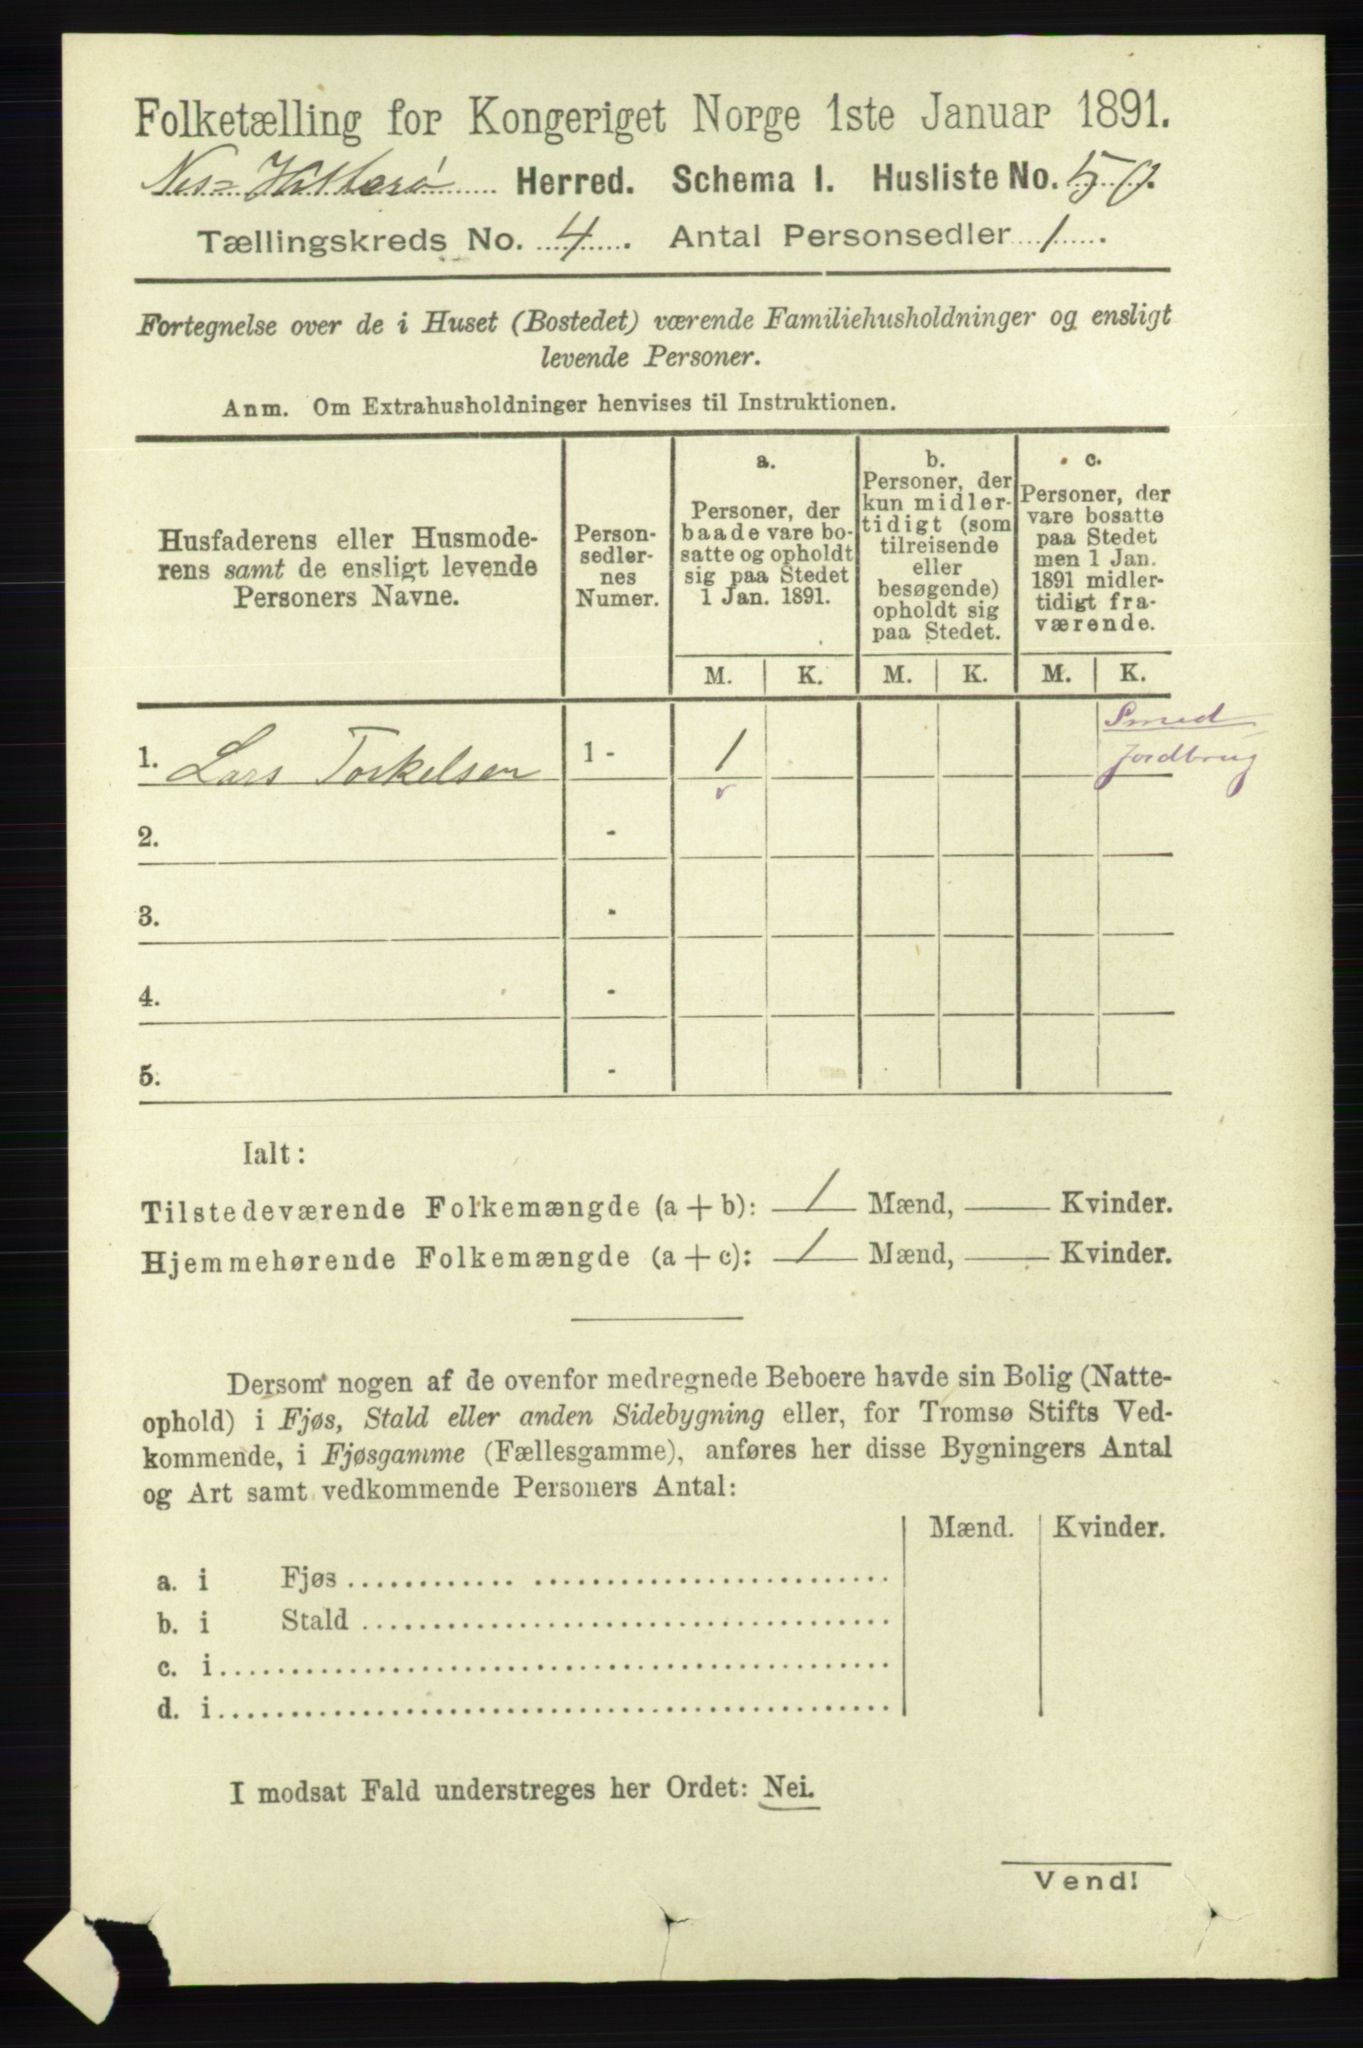 Folketælling for Kongeriget Norge 1ste Januar 1891.
Nes=Hitterø Herred. Schema I. Husliste No. 50.
Tællingskreds No. 4. Antal Personsedler 1.
Fortegnelse over de i Huset (Bostedet) værende Familiehusholdninger og ensligt
levende Personer.
Anm. Om Extrahusholdninger henvises til Instruktionen.
Husfaderens eller Husmode-
rens samt de ensligt levende
Personers Navne.
Person-
sedler-
nes
Numer.
a.
Personer, der
baade vare bo-
satte og opholdt
sig paa Stedet
1 Jan. 1891.
b.
Personer, der
kun midler-
tidigt (som
tilreisende
eller
besøgende)
opholdt sig
paa Stedet.
c.
Personer, der
vare bosatte
paa Stedet
men 1 Jan.
1891 midler-
tidigt fra-
værende.
M. K. M. K. M. K.
1. Lars Torkelsen 1 - 1 Smed
Jordbrug
2. -
3. -
4. -
5. -
Ialt:
Tilstedeværende Folkemængde (a + b): 1 Mænd, — Kvinder.
Hjemmehørende Folkemængde (a + c): 1 Mænd, — Kvinder.
Dersom nogen af de ovenfor medregnede Beboere havde sin Bolig (Natte-
ophold) i Fjøs, Stald eller anden Sidebygning eller, for Tromsø Stifts Ved-
kommende, i Fjøsgamme (Fællesgamme), anføres her disse Bygningers Antal
og Art samt vedkommende Personers Antal:
Mænd. Kvinder.
a. i Fjøs
b. i Stald
c. i
d. i
I modsat Fald understreges her Ordet: Nei.
Vend!